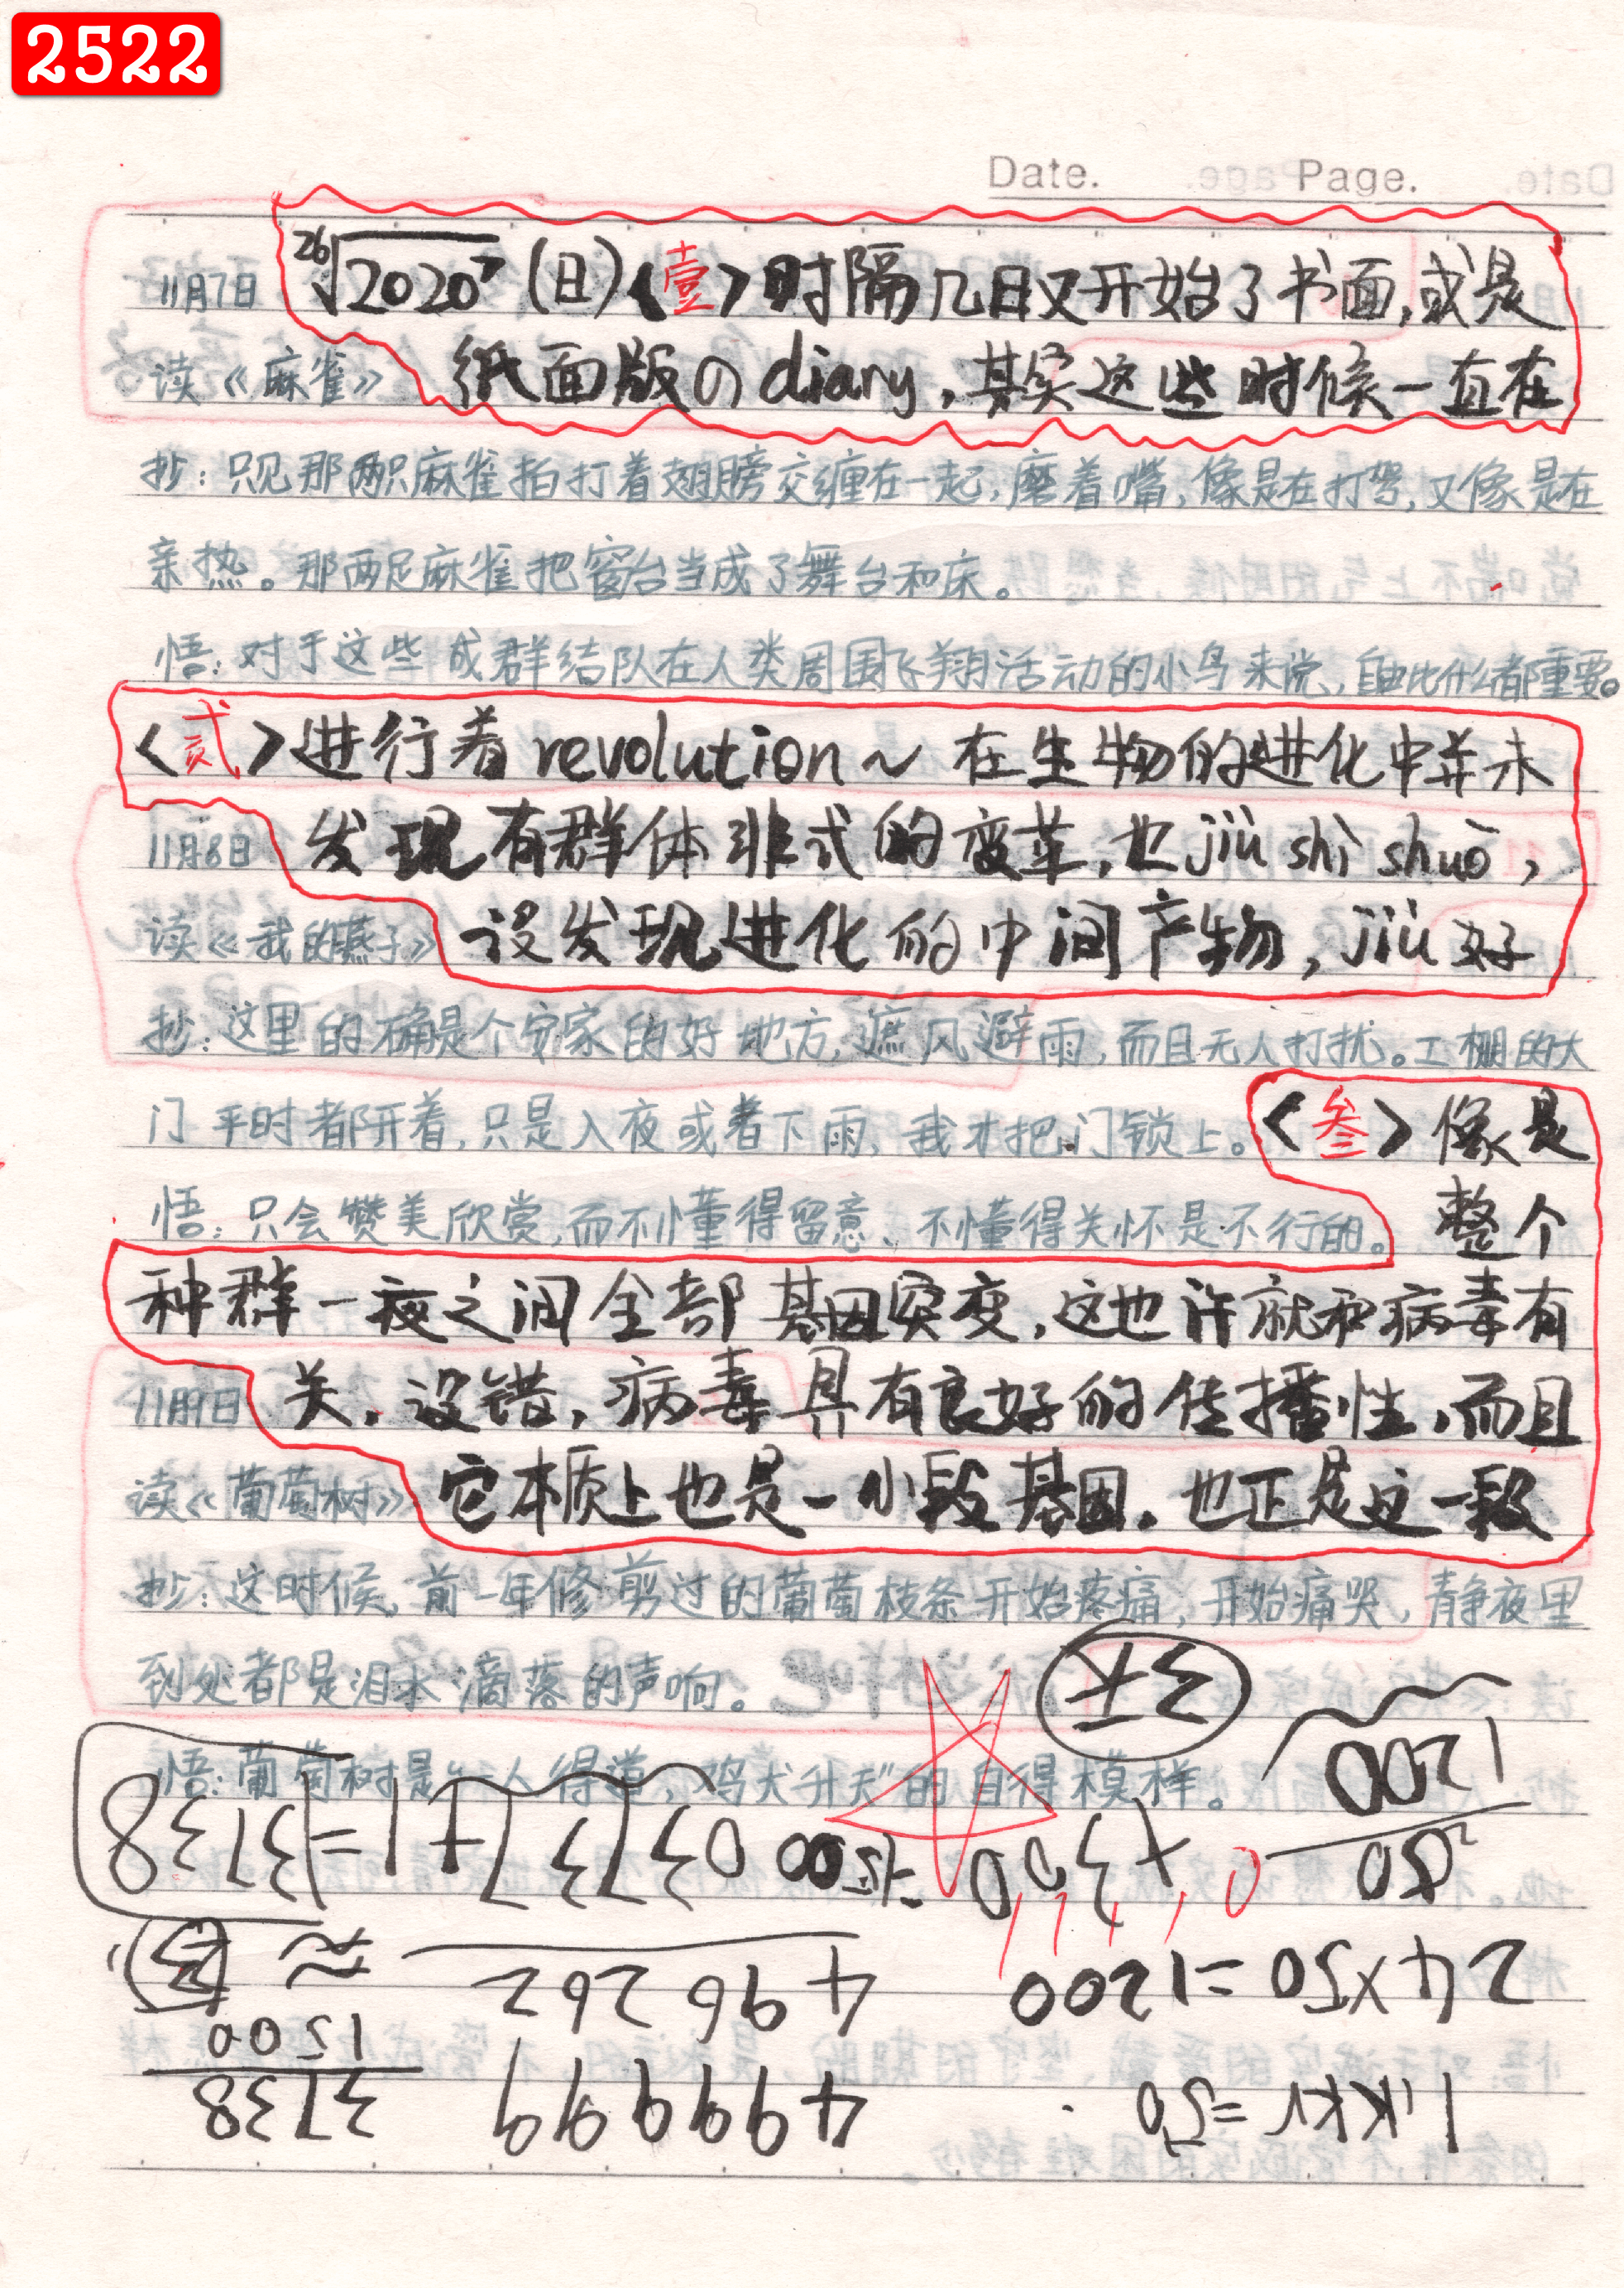 2522
Date. Page.
11月7日 ²⁶√2020⁷ (日)<壹>时隔几日又开始了书面,或是
读《麻雀》 纸面版の diary,其实这些时候一直在
抄:只见那两只麻雀拍打着翅膀交缠在一起,磨着嘴,像是在打驾,又像是在
亲热。那两足麻雀把窗台当成了舞台和床。
悟:对于这些成群结队在人类周围飞翔活动的小鸟来说,自由比什么都重要。
<贰>进行着revolution~在生物的进化中并未
11月8日 发现有群体非式的变革,也jiù shì shuō,
读《我的燕子》 没发现进化的中间产物,jiù好
抄:这里的确是个安家的好地方,遮风避雨,而且无人打扰。工棚的大
门平时都开着,只是入夜或者下雨,我才把门锁上。<叁>像是
悟:只会赞美欣赏,而不懂得留意、不懂得关怀是不行的。 整个
种群一夜之间全部基因突变,这也许就和病毒有
11月9日 关,没错,病毒具有良好的传播性,而且
读《葡萄树》 它本质上也是一小段基因。也正是这一段
抄:这时候,前一年修剪过的葡萄枝条开始疼痛,开始痛哭,静夜里
到处都是泪水滴落的声响。
悟:葡萄树是"一人得道,鸡犬升天"的自得模样。
1200
50
+300
=1500
03737+1=3738
24×50=1200
496262
≈
1500
3738
499999
=50